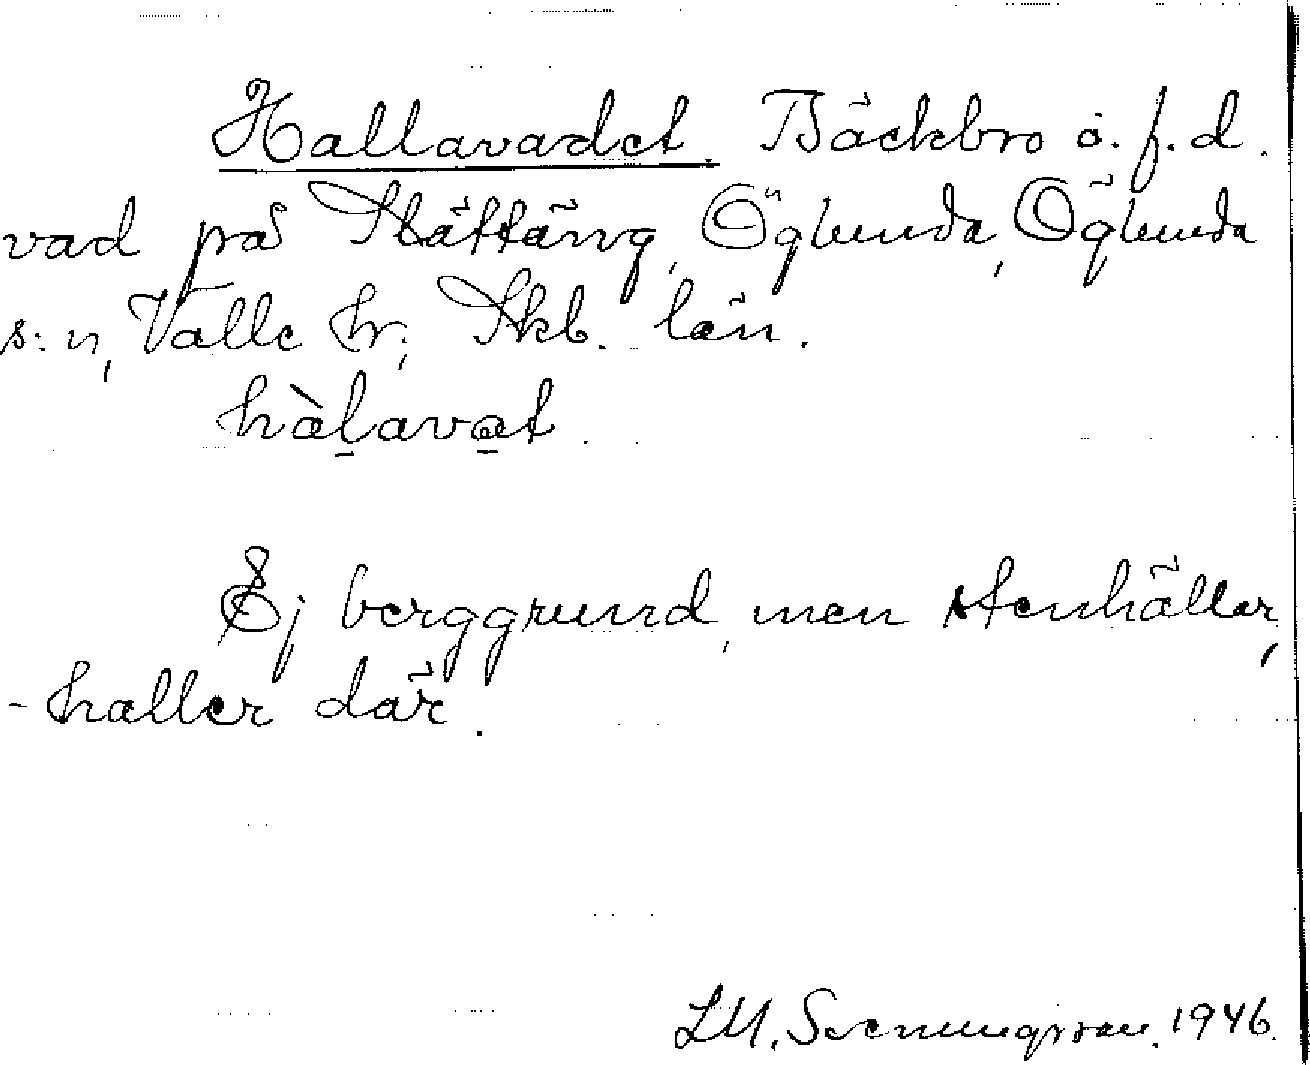 Hallavadet Bäckbro o. f. d.
vad på Slättäng, Öglunda, Öglunda
s:n, Valle hr; Skb. län.
hàlavat
Ej berggrund, men stenhäller,
-haller där.
LM. Svenungsson. 1946.